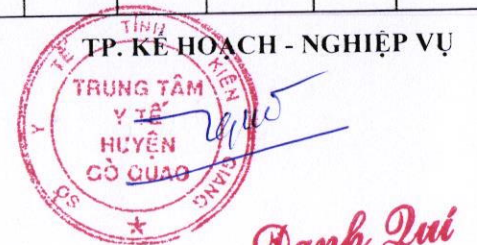 TP. KẾ HOẠCH - NGHIỆP VỤ
SỞ Y TẾ TỈNH KIÊN GIANG
TRUNG TÂM
Y TẾ
HUYỆN
GÒ QUAO
Danh Quí